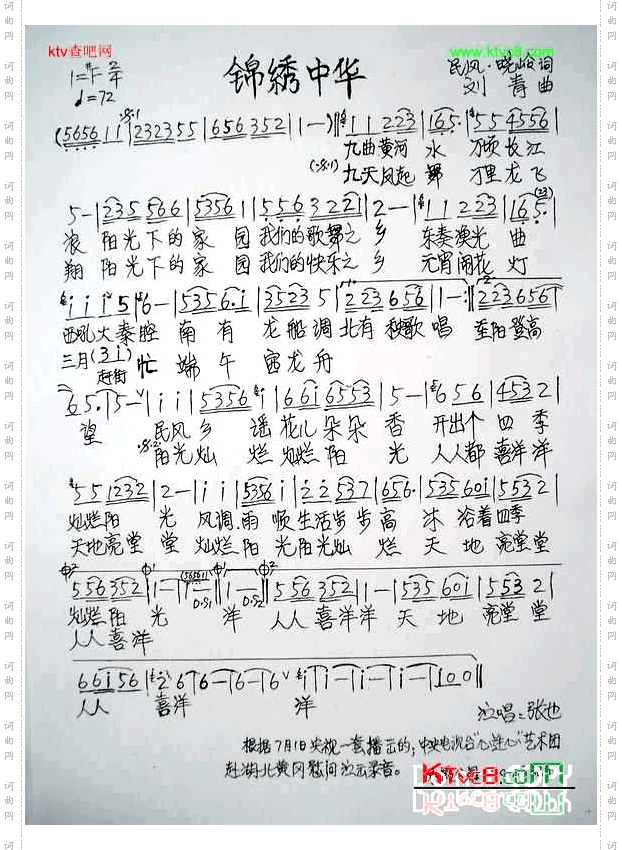 ktv查吧网
www.ktvc8.com
锦绣中华
1=#F 2/4
♩=72
民风·晓峻词
刘青 曲
(5656 1 1 | 232355 | 656352 | 1 —) | 1 1 223 | 165· | 55 4556 |
九曲黄河 水 万顷长江
九天凤起 舞 万里龙飞
5 — | 235 566 | 5356 1 | 556 3221 | 2 — | 1 1 223 | 165· |
浪 阳光下的 家 园 我们的歌舞之 乡 东奏澳光 曲
翔 阳光下的 家 园 我们的快乐之 乡 元宵闹花 灯
i i i 5 | 6 — | 5356·i | 3523 5 | 223 656 | 1 — :| 223 656 |
西吼大秦 腔 南 有 龙船调 北有 秧歌 唱 重阳登高
三月(3i) 忙 端 午 赛龙舟
赶街
65· | 5 — | i i | 5356 i | 66i 6553 | 5 — | 6 5 6 | 453 2 |
望 民风 乡 谣 花儿 朵朵 香 开出个 四 季
阳光 灿 烂 灿烂 阳 光 人人都 喜洋 洋
55 1232 | 2 — | i i | 5356 i | 2 2 537 | 656· | 535 60i | 553 2 |
灿烂阳 光 风调 雨 顺 生活步 步 高 沐 浴着 四季
天地亮堂 堂 灿烂 阳 光 阳光灿 烂 天 地 亮堂 堂
556352 | 1 — | 1 — | 1 — | 556 352 | 1 — | 535 60i | 553 2 |
灿烂阳 光 洋 人人 喜洋洋 天 地 亮堂 堂
人人 喜洋
66i56 | 2 6 | 6 — | 6 — | 6 | i | i — | i — | i — | i 0 0 ||
人人 喜洋 洋
演唱:张也
根据7月1日央视一套播出的;中央电视台“心连心”艺术团
赴湖北黄冈慰问演出录音。
Ktvc8.com
COPY
词曲网